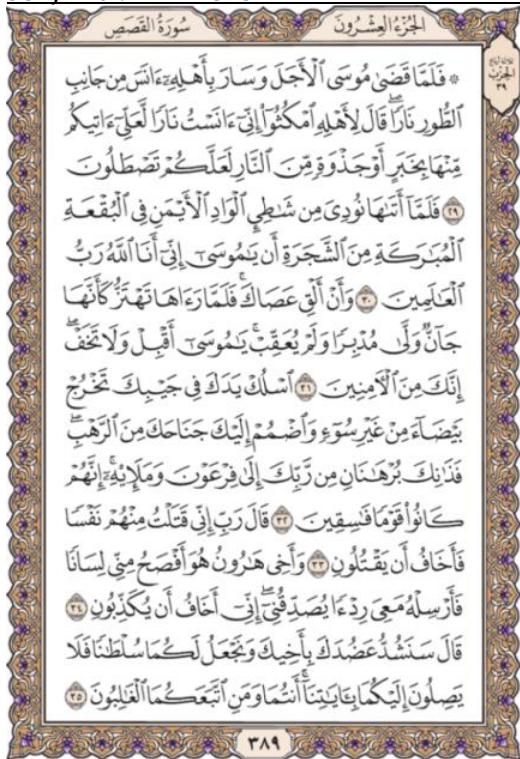 الجُزْءُ العِشْرُونَ
سُورَةُ القَصَصِ
ثلاثة أرباع
الحزب
٣٩
۞ فَلَمَّا قَضَىٰ مُوسَى ٱلْأَجَلَ وَسَارَ بِأَهْلِهِۦٓ ءَانَسَ مِن جَانِبِ
ٱلطُّورِ نَارًاۖ قَالَ لِأَهْلِهِ ٱمْكُثُوٓا۟ إِنِّىٓ ءَانَسْتُ نَارًا لَّعَلِّىٓ ءَاتِيكُم
مِّنْهَا بِخَبَرٍ أَوْ جَذْوَةٍ مِّنَ ٱلنَّارِ لَعَلَّكُمْ تَصْطَلُونَ
٢٩ فَلَمَّآ أَتَىٰهَا نُودِىَ مِن شَٰطِئِ ٱلْوَادِ ٱلْأَيْمَنِ فِى ٱلْبُقْعَةِ
ٱلْمُبَٰرَكَةِ مِنَ ٱلشَّجَرَةِ أَن يَٰمُوسَىٰٓ إِنِّىٓ أَنَا ٱللَّهُ رَبُّ
ٱلْعَٰلَمِينَ ٣٠ وَأَنْ أَلْقِ عَصَاكَۖ فَلَمَّا رَءَاهَا تَهْتَزُّ كَأَنَّهَا
جَآنٌّ وَلَّىٰ مُدْبِرًا وَلَمْ يُعَقِّبْۚ يَٰمُوسَىٰٓ أَقْبِلْ وَلَا تَخَفْۖ
إِنَّكَ مِنَ ٱلْءَامِنِينَ ٣١ ٱسْلُكْ يَدَكَ فِى جَيْبِكَ تَخْرُجْ
بَيْضَآءَ مِنْ غَيْرِ سُوٓءٍ وَٱضْمُمْ إِلَيْكَ جَنَاحَكَ مِنَ ٱلرَّهْبِۖ
فَذَٰنِكَ بُرْهَٰنَانِ مِن رَّبِّكَ إِلَىٰ فِرْعَوْنَ وَمَلَإِي۟هِۦٓۚ إِنَّهُمْ
كَانُوا۟ قَوْمًا فَٰسِقِينَ ٣٢ قَالَ رَبِّ إِنِّى قَتَلْتُ مِنْهُمْ نَفْسًا
فَأَخَافُ أَن يَقْتُلُونِ ٣٣ وَأَخِى هَٰرُونُ هُوَ أَفْصَحُ مِنِّى لِسَانًا
فَأَرْسِلْهُ مَعِىَ رِدْءًا يُصَدِّقُنِىٓۖ إِنِّىٓ أَخَافُ أَن يُكَذِّبُونِ ٣٤
قَالَ سَنَشُدُّ عَضُدَكَ بِأَخِيكَ وَنَجْعَلُ لَكُمَا سُلْطَٰنًا فَلَا
يَصِلُونَ إِلَيْكُمَا بِـَٔايَٰتِنَآۚ أَنتُمَا وَمَنِ ٱتَّبَعَكُمَا ٱلْغَٰلِبُونَ ٣٥
٣٨٩